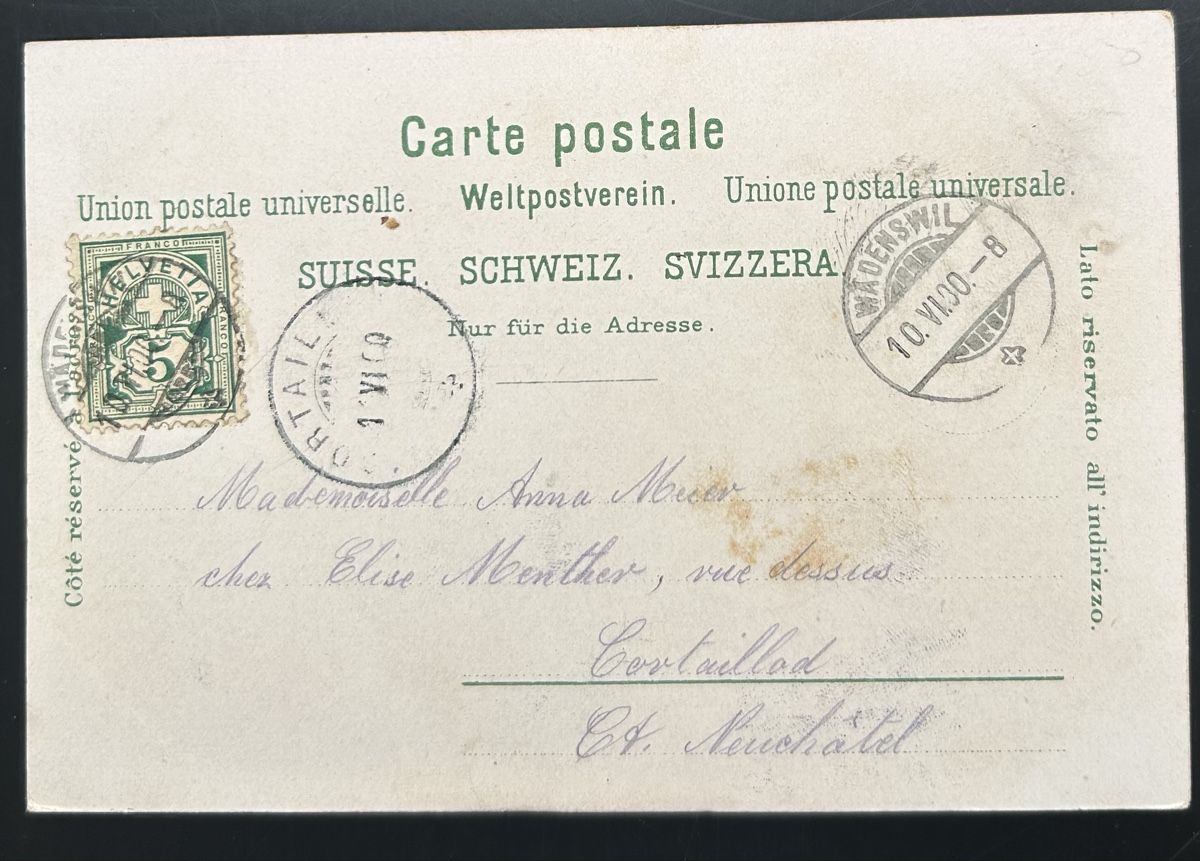 Carte postale
Union postale universelle. Weltpostverein. Unione postale universale.
SUISSE. SCHWEIZ. SVIZZERA
Nur für die Adresse.
Côté réservé à l'adresse
Lato riservato all' indirizzo.
FRANCO
HELVETIA
FRANCO
5
WÄDENSWIL
10.VI.00.-8
CORTAIL
VI.00
Mademoiselle Anna Meier
chez Elise Menther, rue dessus
Cortaillod
Ct. Neuchâtel